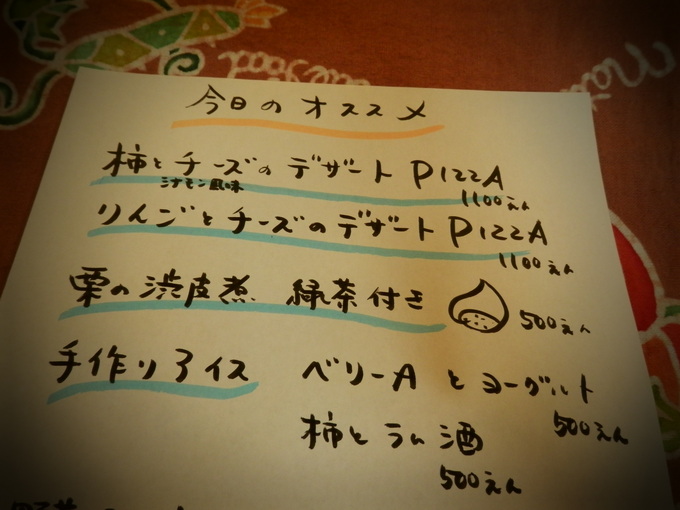 今日のオススメ
柿とチーズのデザートPIZZA
シナモン風味
1100えん
りんごとチーズのデザートPIZZA
1100えん
栗の渋皮煮 緑茶付き 500えん
手作りアイス ベリーAとヨーグルト
500えん
柿とラム酒
500えん